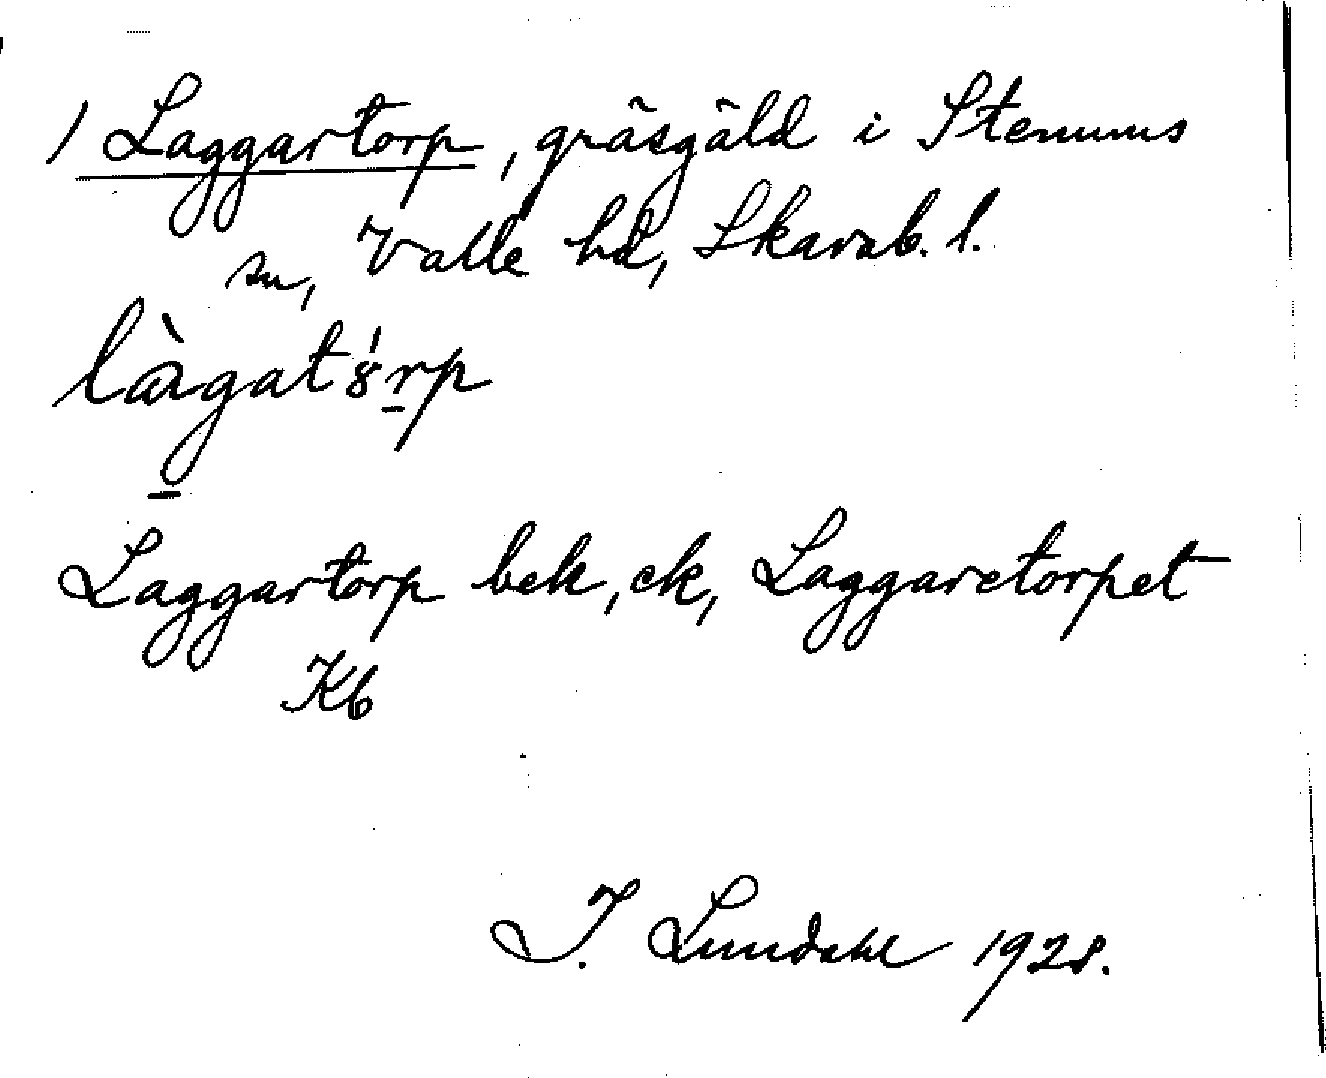 1 Laggartorp, gräsgäld i Stenums
sn, Valle hd, Skarab. l.
làgat8́rp
Laggartorp bek, ek, Laggaretorpet
Kb
I. Lundahl 1928.